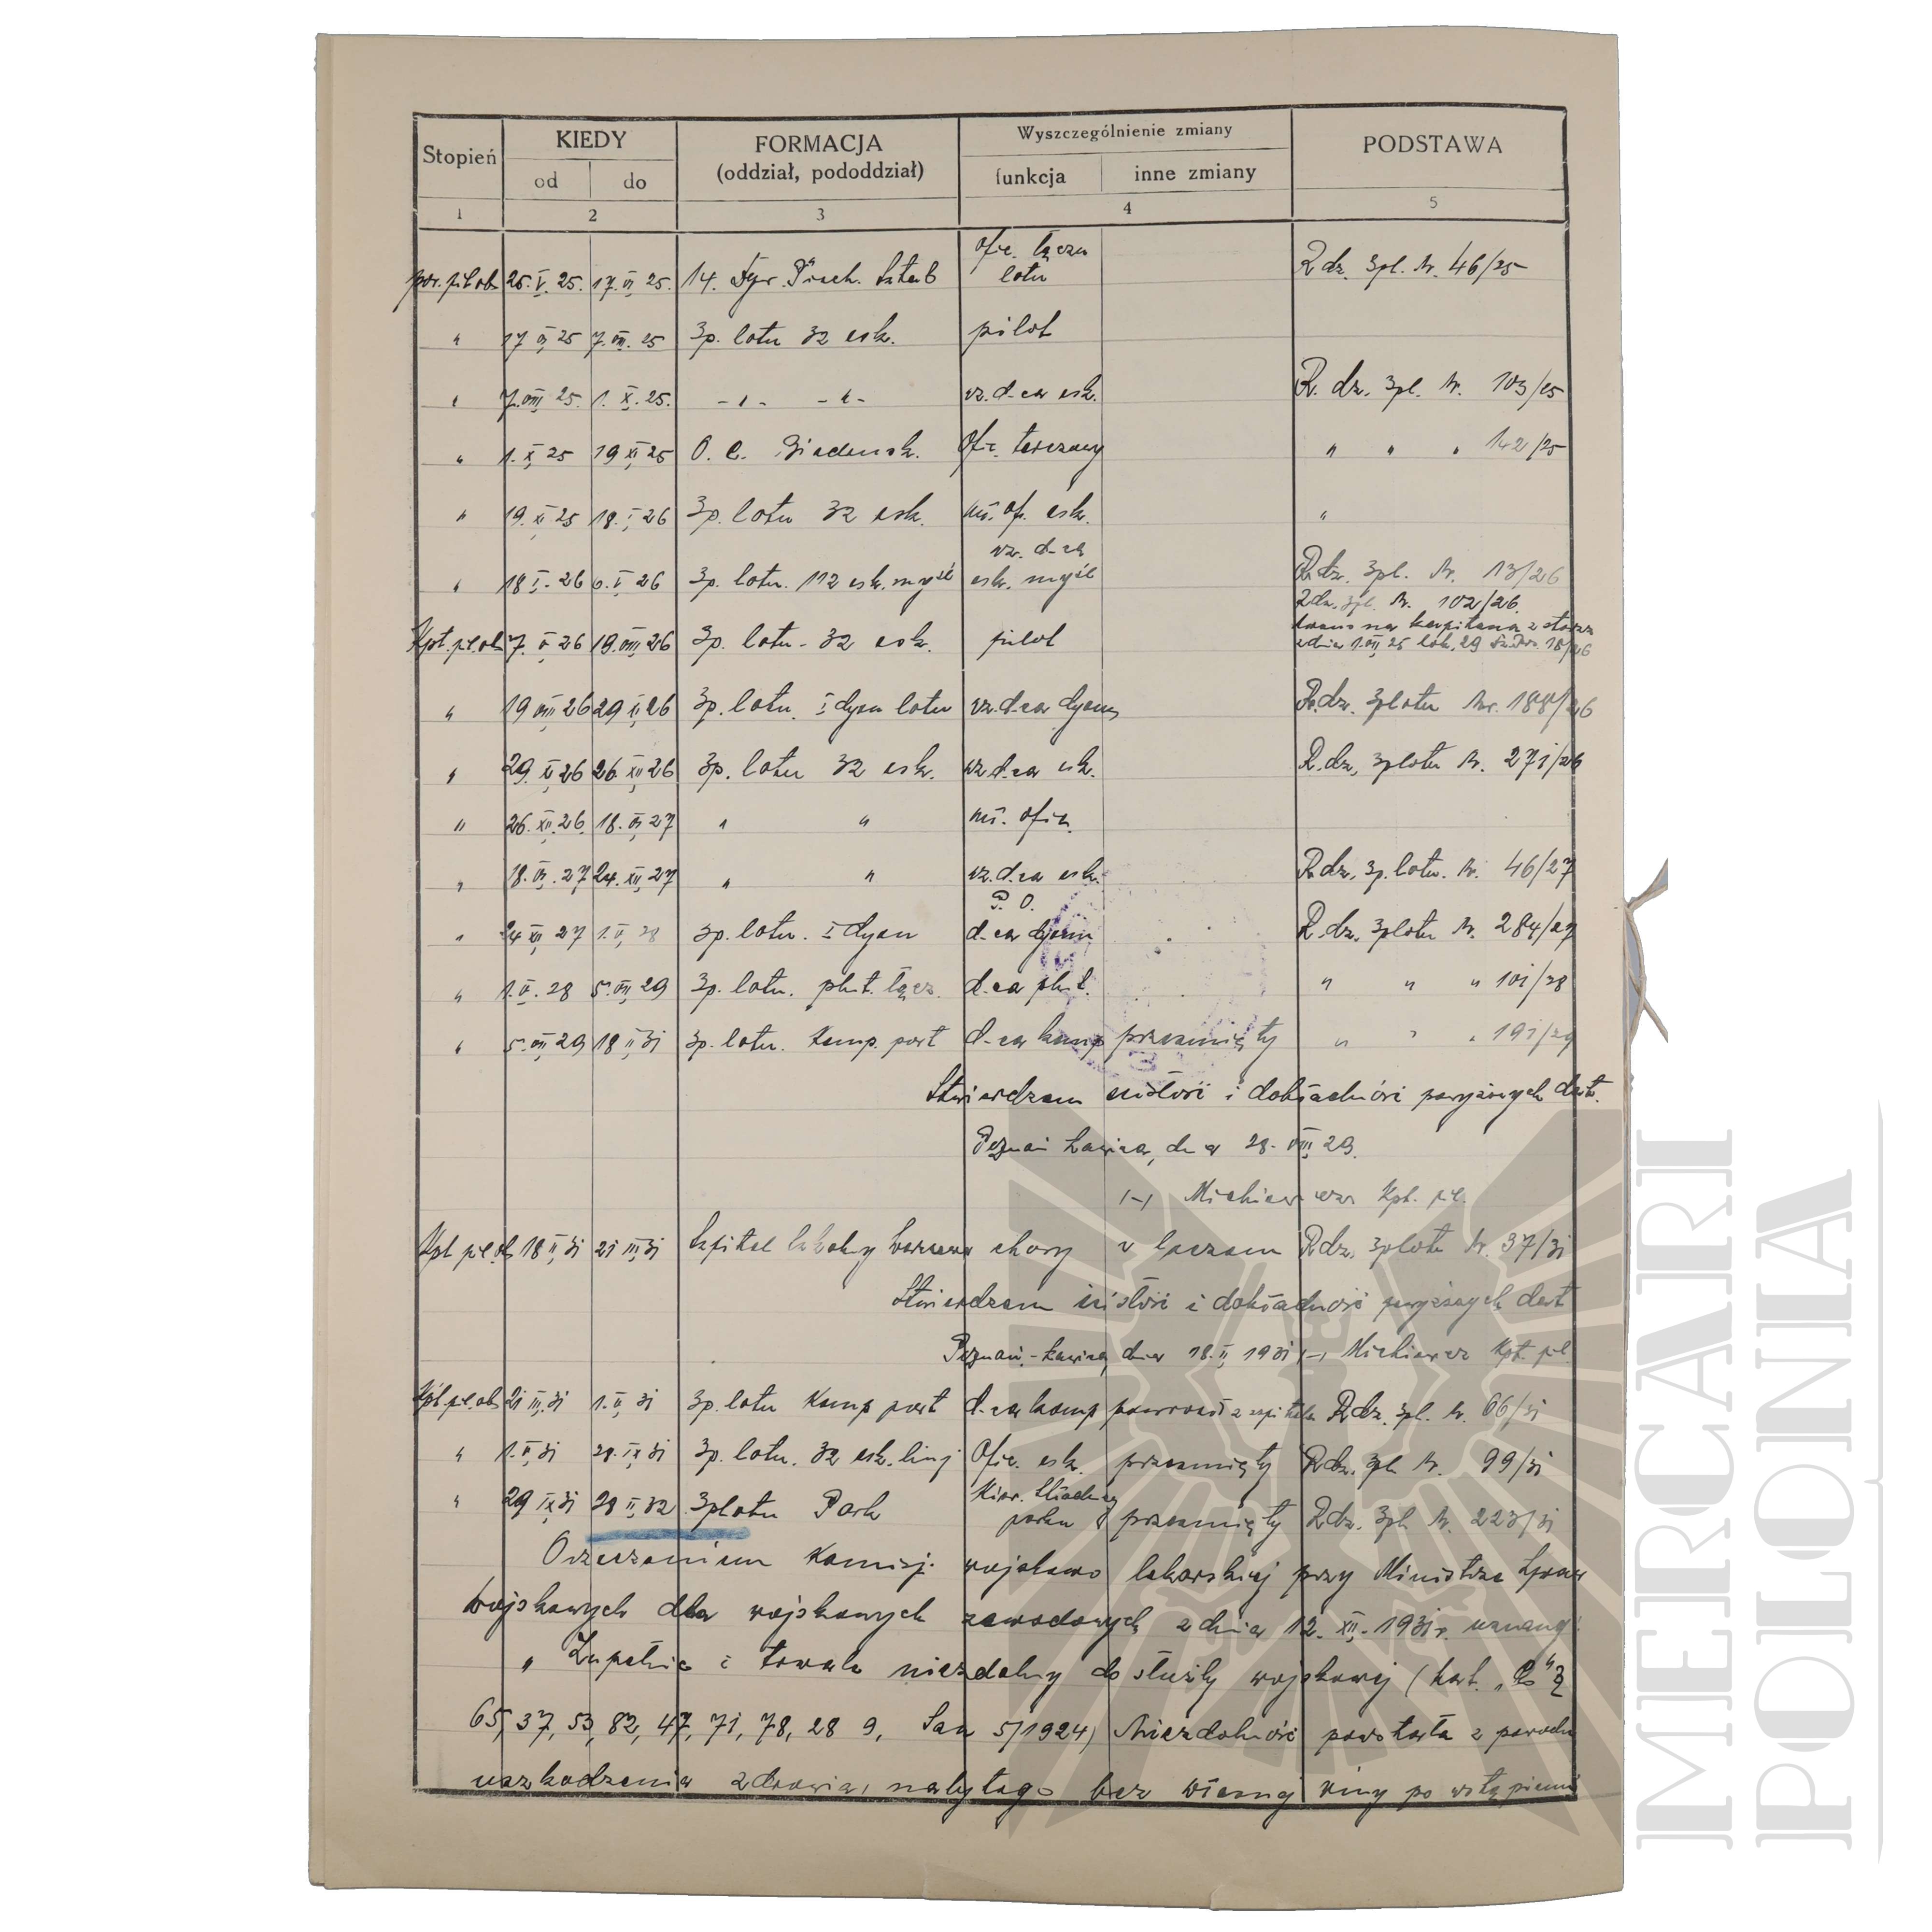 Stopień KIEDY FORMACJA (oddział, pododdział) Wyszczególnienie zmiany PODSTAWA
od do funkcja inne zmiany
1 2 3 4 5
ofic. łączn
por. pil. ob. 25. V. 25. 17. VI 25. 14. Dyw. Piech. Sztab lotn R dz. 3pl. Nr. 46/25
" 17 VI 25 7. VIII. 25 3p. lotn 32 esk. pilot
" 7. VIII 25. 1. X. 25. -"- -"- wz. d-ca esk. R. dz. 3pl. Nr. 103/25
" 1. X 25 19 XI 25 O. C. Biedrusk. Ofic. tarczowy " " " 142/25
" 19. XI 25 18. I 26 3p. lotn 32 esk. mł. of. esk. "
wz. d-ca
" 18 I. 26 6. V 26 3p. lotn. 112 esk. myśl esk. myśl R. dz. 3pl. Nr. 13/26
R dz. 3pl. Nr. 102/26.
Kpt. pil. ob. 7. V 26 19. VIII 26 3p. lotn - 32 esk. pilot awans na kapitana z starsz
z dnia 1. VII 25 lok. 29 18/26
" 19 VIII 26 29 XI 26 3p. lotn. I dyon lotn wz. d-ca dyonu R. dz. 3plotn Nr. 188/26
" 29. XI 26 26 XII 26 3p. lotn 32 esk. wz. d-ca esk. R. dz. 3plotn Nr. 271/26
" 26. XII. 26. 18. VI 27 " " mł. ofic.
" 18. VI. 27 24. XII 27 " " wz. d-ca esk. R dz. 3p. lotn. Nr. 46/27
P. O.
" 24 XII 27 1. V 28 3p. lotn. I dyon d-ca dyonu R. dz. 3plotn Nr. 284/27
" 1. V. 28 5. VII 29 3p. lotn. plut. łącz. d-ca plut. " " " 101/28
" 5. VII 29 18 II 31 3p. lotn. Komp. port d-ca komp przesunięty " " " 191/29
Stwierdzam ścisłość i dokładność powyższych dat.
Poznań Ławica, dnia 28. VIII 29.
/-/ Mickiewicz Kpt. pil.
Kpt pil. ob. 18 II 31 21 III 31 Szpital Szkolny Warszawa chory w leczen R dz. 3plotn Nr. 37/31
Stwierdzam ścisłość i dokładność powyższych dat
Poznań - Ławica, dnia 18. II 1931 /-/ Mickiewicz Kpt. pil.
Kpt. pil. ob. 21 III. 31 1. V 31 3p. lotn Komp port d-ca komp powrócił z szpitala R dz. 3pl. Nr. 66/31
" 1. V 31 29. IX 31 3p. lotn. 32 esk. linj Ofic. esk. przesunięty R dz. 3pl. Nr. 99/31
" 29 IX 31 28 II 32 3plotn Park Kier. Składnicy parku przesunięty R dz. 3pl. Nr. 223/31
Orzeczeniem Komisji wojskowo lekarskiej przy Ministrze Spraw
Wojskowych dla wojskowych zawodowych z dnia 12. XII. 1931 r. uznany:
„ Zupełnie i trwale niezdolny do służby wojskowej ( kat. „
65, 37, 53, 82, 47, 71, 78, 28 9, San 5/1924) Niezdolność powstała z powodu
uszkodzenia zdrowia, nabytego bez własnej winy po wstąpieniu
MERCARI
POLONIA